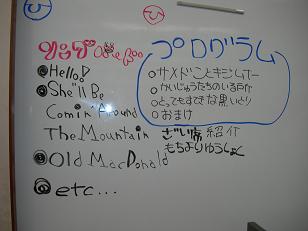 Hello!
She'll Be
Comin' Around
The Mountain
Old MacDonald
etc...
プログラム
サメドことキジムナー
かいじゅうたちのいるところ
とってもすてきな黒いとり
おまけ
ざい席紹介
もちよりゆうしょく